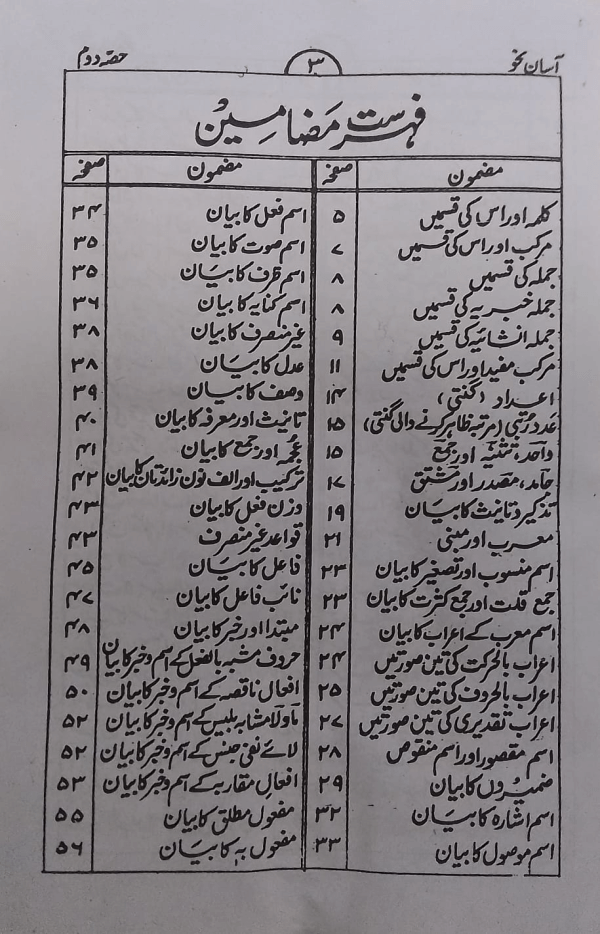 آسان نحو ۳ حصّہ دوم
فہرست مَضامِیْن
مضمون صفحہ
کلمہ اور اس کی قسمیں ۵
مرکب اور اس کی قسمیں ۷
جملہ کی قسمیں ۸
جملہ خبریہ کی قسمیں ۸
جملہ انشائیہ کی قسمیں ۹
مرکب مفید اور اس کی قسمیں ۱۱
اعداد (گنتی) ۱۴
عددِ رُتبی (مرتبہ ظاہر کرنے والی گنتی) ۱۵
واحد، تثنیہ اور جمع ۱۵
جامد، مصدر اور مشتق ۱۷
تذکیر و تانیث کا بیان ۱۹
معرب اور مبنی ۲۱
اسم منسوب اور تصغیر کا بیان ۲۳
جمع قلت اور جمع کثرت کا بیان ۲۳
اسم معرب کے اعراب کا بیان ۲۴
اعراب بالحرکت کی تین صورتیں ۲۴
اعراب بالحروف کی تین صورتیں ۲۵
اعراب تقدیری کی تین صورتیں ۲۷
اسم مقصور اور اسم منقوص ۲۸
ضمیروں کا بیان ۲۹
اسم اشارہ کا بیان ۳۲
اسم موصول کا بیان ۳۳
مضمون صفحہ
اسم فعل کا بیان ۳۴
اسم صوت کا بیان ۳۵
اسم ظرف کا بیان ۳۵
اسم کنایہ کا بیان ۳۶
غیر منصرف کا بیان ۳۸
عدل کا بیان ۳۸
وصف کا بیان ۳۹
تانیث اور معرفہ کا بیان ۴۰
عُجمہ اور جمع کا بیان ۴۱
ترکیب اور الف نون زائدتان کا بیان ۴۲
وزن فعل کا بیان ۴۳
قواعد غیر منصرف ۴۳
فاعل کا بیان ۴۵
نائب فاعل کا بیان ۴۷
مبتدا اور خبر کا بیان ۴۸
حروف مشبہ بالفعل کے اسم و خبر کا بیان ۴۹
افعال ناقصہ کے اسم و خبر کا بیان ۵۰
مَا و لَا مشابہ بلیس کے اسم و خبر کا بیان ۵۲
لائے نفی جنس کے اسم و خبر کا بیان ۵۲
افعال مقاربہ کے اسم و خبر کا بیان ۵۳
مفعول مطلق کا بیان ۵۵
مفعول بہٖ کا بیان ۵۶